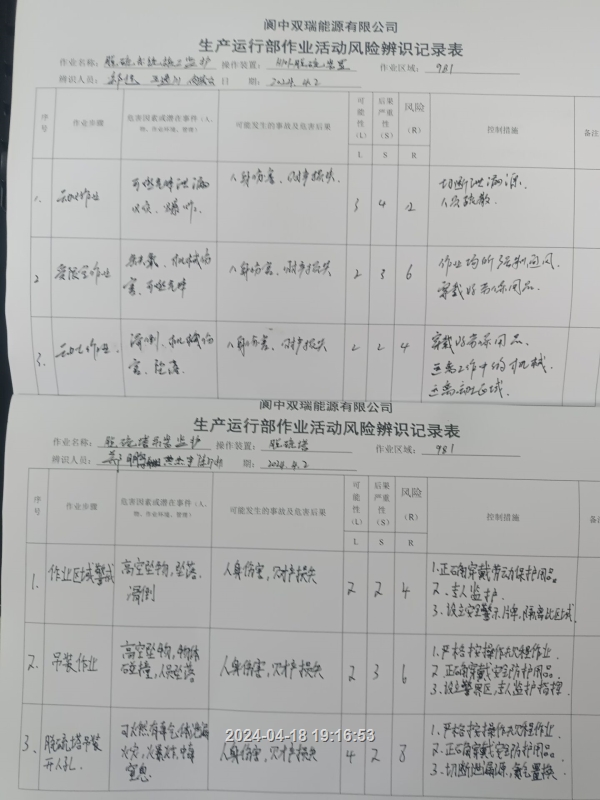 阆中双瑞能源有限公司
生产运行部作业活动风险辨识记录表
作业名称：脱硫系统施工监护 操作装置：脱硫装置 作业区域：981
辨识人员： 日 期：2024.4.2
序号 作业步骤 危害因素或潜在事件（人、物、作业环境、管理） 可能发生的事故及危害后果 可能性（L） 后果严重性（S） 风险（R） 控制措施 备注
L S R
1. 动火作业 可燃气体泄漏 人身伤害、财产损失 3 4 12 切断泄漏源、
火灾、爆炸 人员疏散
2 受限空作业 机械伤 人身伤害、财产损失 2 3 6 作业场所强制通风
害、可燃气体 穿戴好劳保用品。
3. 动土作业 滑倒、机械伤 人身伤害、财产损失 2 2 4 穿戴好劳保用品
害、坠落 远离工作中的机械
远离动土区域
阆中双瑞能源有限公司
生产运行部作业活动风险辨识记录表
作业名称：脱硫塔吊装监护 操作装置：脱硫塔 作业区域：981
辨识人员： 期：2024.4.2
序号 作业步骤 危害因素或潜在事件（人、物、作业环境、管理） 可能发生的事故及危害后果 可能性（L） 后果严重性（S） 风险（R） 控制措施 备注
L S R
1. 作业区域警戒 高空坠物，坠落、 人身伤害，财产损失 2 2 4 1.正确穿戴劳动保护用品。
滑倒 2.专人监护
3.设立安全警示片牌，隔离此区域
2. 吊装作业 高空坠物，物体 人身伤害，财产损失 2 3 6 1.严格按操作规程作业
碰撞，人员坠落 2.正确穿戴安全防护用品。
3.设立警界区，专人监护指挥
3、 脱硫塔吊装 可燃有毒气体泄漏 人身伤害，财产损失 4 2 8 1.严格按操作规程作业。
开人孔 火灾，爆炸，中毒 2.正确穿戴安全防护用品。
窒息 3.切断泄漏源，氮气置换
2024-04-18 19:16:53